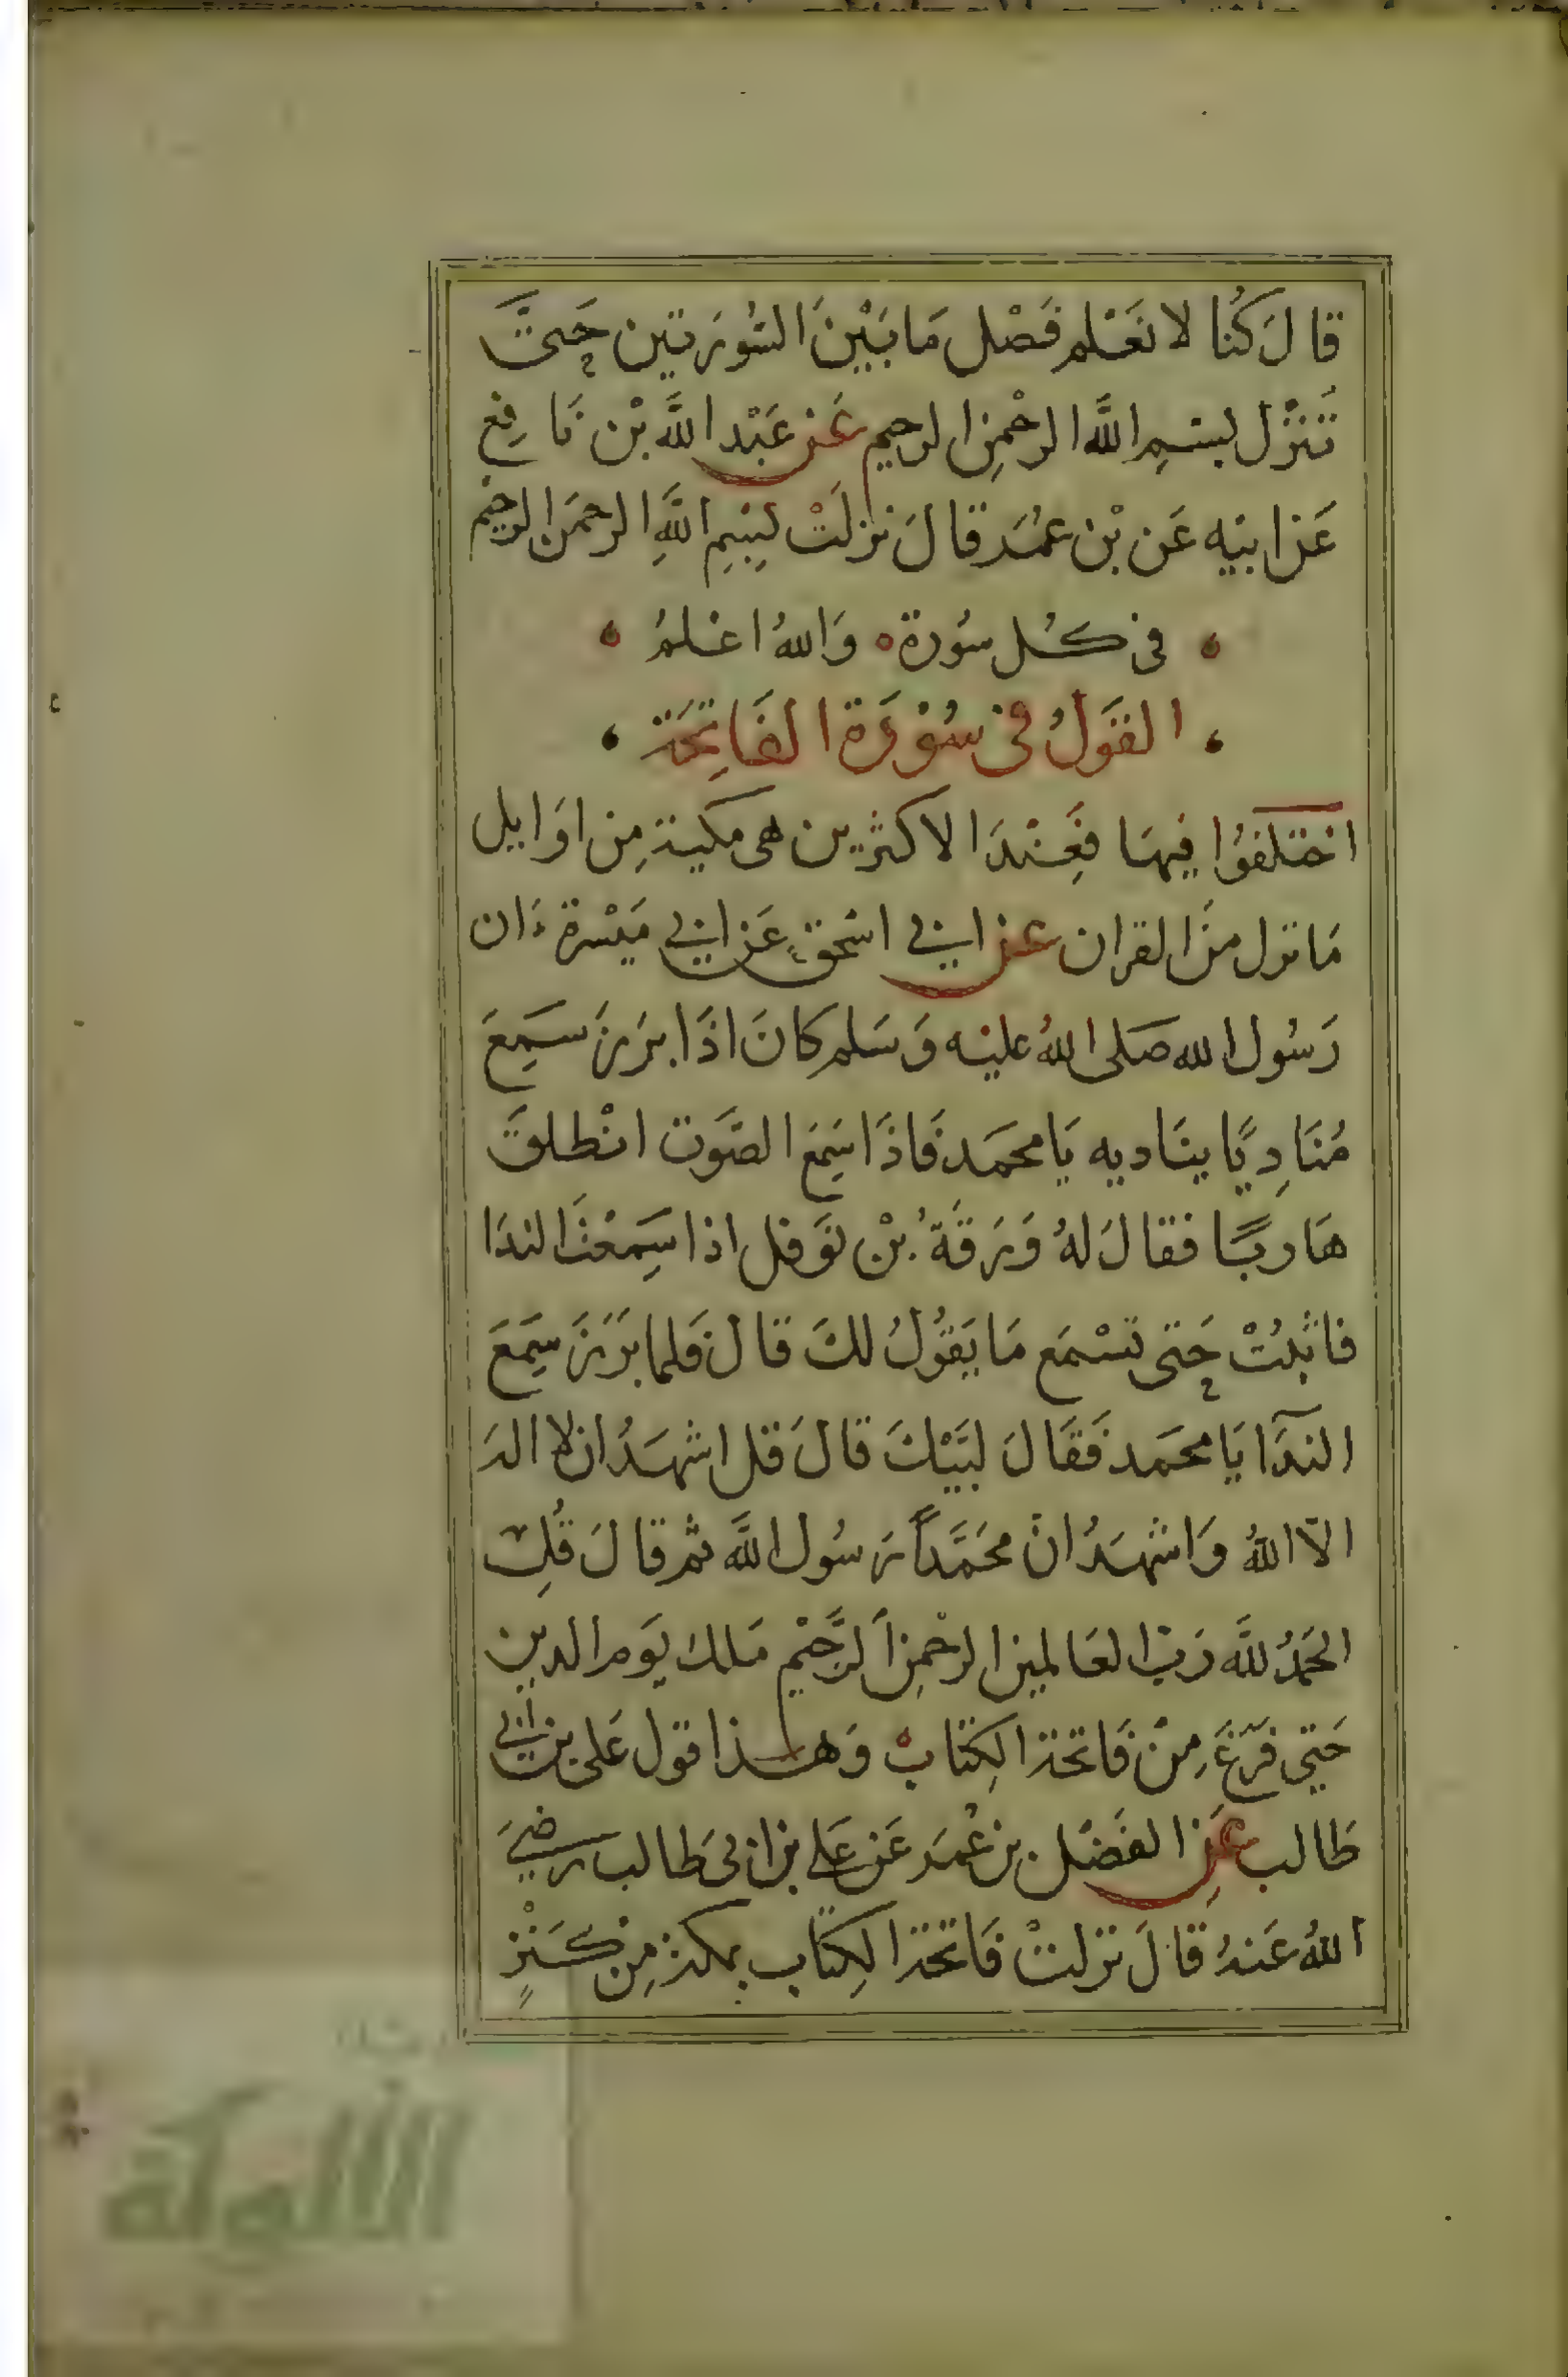 قالَ كُنا لا نَعْلم فَصْل مَا بَيْنَ السُّورَتين حَتىَّ
تَنْزل بسْمِ اللَّه الرحْمنِ الرحيم عَن عَبْد اللَّه بْن نَافِع
عَن ابيْه عَن بْن عُمَر قالَ نزلَتْ بِسْمِ اللَّهِ الرحمَن الرحيْم
فى كُل سُورة وَاللهُ اعْلمُ
القَولُ فى سُوْرَة الفَاتِحَة
اختلفوُا فيهَا فَعِنْدَ الاكثرين هى مكية مِن اوَايل
مَا نزل منَ القران عن ابي اسْحق عَن ابي مَيْسرة ان
رَسُول الله صَلى اللهُ عليْه وَسَلم كانَ اذَا برَزَ سَمِعَ
مُنَادِيًا يناديه يَا محمَد فَاذَا سَمِعَ الصَّوت انْطلقَ
هَاربًا فقالَ لهُ وَرَقَةُ بْن نَوفل اذا سَمِعْتَ الندَا
فاثبُتْ حَتى تَسْمَع مَا يَقوُلُ لكَ قالَ فَلما بَرَزَ سَمِعَ
الندَآ يَا محمَد فَقَالَ لبَيْكَ قالَ قل اشهَدُ ان لا اله
الّا اللهُ وَاشهَدُ انّ محَمَّداً رَسُول اللَّه ثم قالَ قُلِ
الحَمدُ للَّه رَبّ العَالمين الرحْمنِ الرَّحيْم مَلك يَوم الدين
حَتى فَرَغَ مِنْ فَاتحة الكِتابْ وَهذا قول عَلى بن ابي
طَالب عَنِ الفَضْل بن عُمَر عَن عَلي بن ابى طَالب رَضيَ
اللهُ عَنهُ قالَ نزلتْ فَاتحة الكِتَاب بمكة مِنْ كَنْزٍ
الألوكة